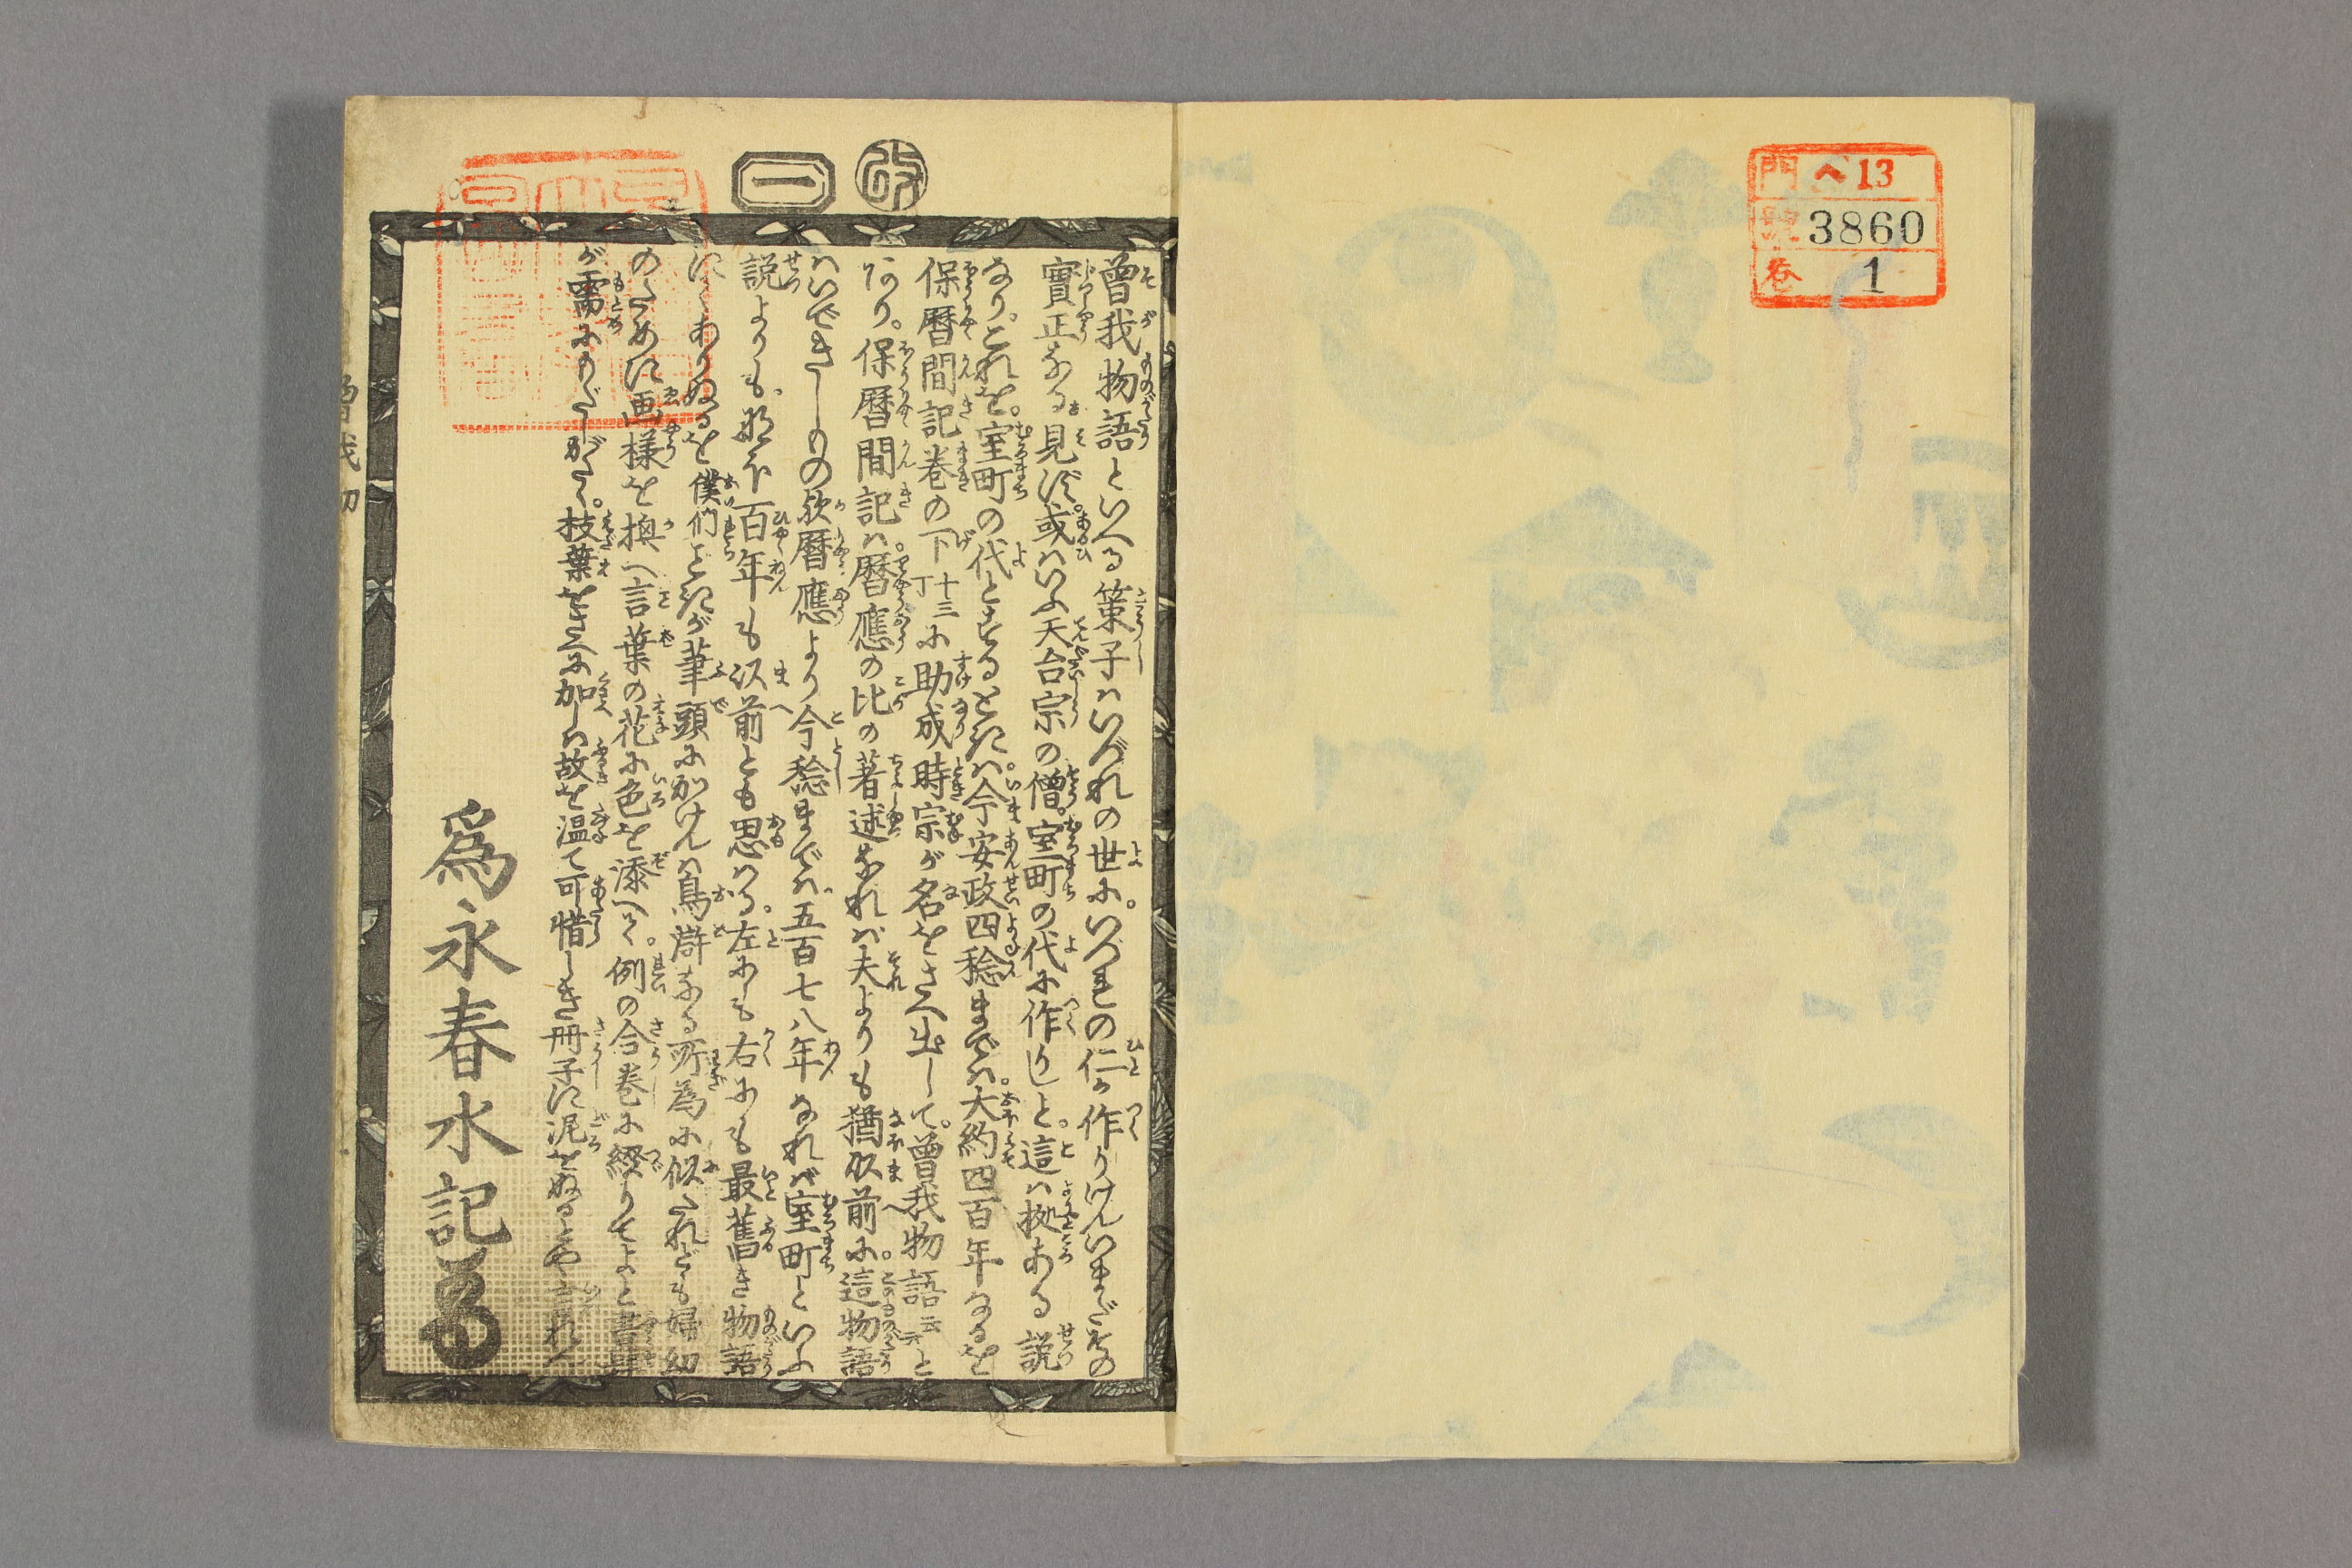 門 ヘ13
號 3860
巻 1
改
一
曽我物語といへる策子ハいづれの世に。いづれの仁か作りけんいまだその
實正なる見ず。或ハいふ天台宗の僧。室町の代に作りしと。這ハ拠ある説
なり。これを。室町の代とするときハ。今安政四稔までハ。大約四百年なるを
保暦間記巻の下十三丁に助成時宗が名をさへ出して。曽我物語云云と
あり。保暦間記ハ。暦應の比の著述なれバ夫よりも猶以前に。這物語
ハいできしもの歟暦應より今稔までハ五百七八年なれバ室町といふ
説よりも。那ほ百年も以前とも思ハる。左にも右にも最舊き物語
にてありぬるを僕們ごときが筆頭にかけんハ烏滸なる所為に似たれども婦幼
のために画様を換へ言葉の花に色を添へて。例の合巻に綴りてよと書肆
が需にもだしがたく。枝葉をさへに加しハ故を温て可惜しき冊子に泥をぬるとやいはれん
為永春水記
曽我初